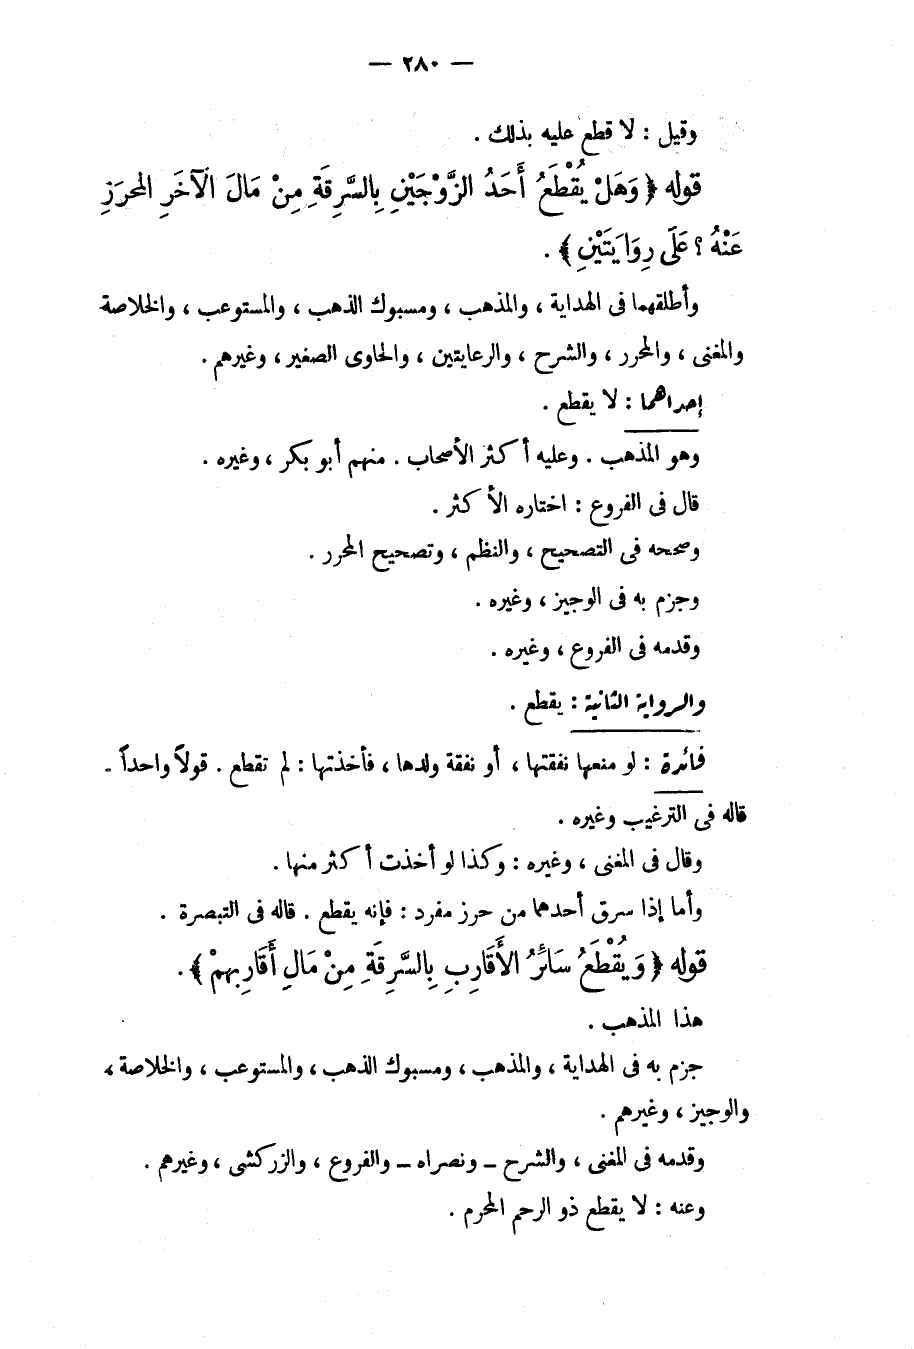 — ٢٨٠ —
وقيل : لا قطع عليه بذلك .
قوله ﴿ وَهَلْ يُقْطَعُ أَحَدُ الزَّوْجَيْنِ بِالسَّرِقَةِ مِنْ مَالَ الْآخَرِ المحرَزِ
عَنْهُ ؟ عَلَى رِوَايَتَيْنِ ﴾ .
وأطلقهما فى الهداية ، والمذهب ، ومسبوك الذهب ، والمستوعب ، والخلاصة
والمغنى ، والمحرر ، والشرح ، والرعايتين ، والحاوى الصغير ، وغيرهم .
إحداهما : لا يقطع .
وهو المذهب . وعليه أكثر الأصحاب . منهم أبو بكر ، وغيره .
قال فى الفروع : اختاره الأكثر .
وصححه فى التصحيح ، والنظم ، وتصحيح المحرر .
وجزم به فى الوجيز ، وغيره .
وقدمه فى الفروع ، وغيره .
والرواية الثانية : يقطع .
فائدة : لو منعها نفقتها ، أو نفقة ولدها ، فأخذتها : لم تقطع . قولاً واحداً .
قاله فى الترغيب وغيره .
وقال فى المغنى ، وغيره : وكذا لو أخذت أكثر منها .
وأما إذا سرق أحدهما من حرز مفرد : فإنه يقطع . قاله فى التبصرة .
قوله ﴿ وَيُقْطَعُ سَائِرُ الأَقَارِبِ بِالسَّرِقَةِ مِنْ مَالِ أَقَارِبِهِمْ ﴾ .
هذا المذهب .
جزم به فى الهداية ، والمذهب ، ومسبوك الذهب ، والمستوعب ، والخلاصة ،
والوجيز ، وغيرهم .
وقدمه فى المغنى ، والشرح – ونصراه – والفروع ، والزركشى ، وغيرهم .
وعنه : لا يقطع ذو الرحم المحرم .